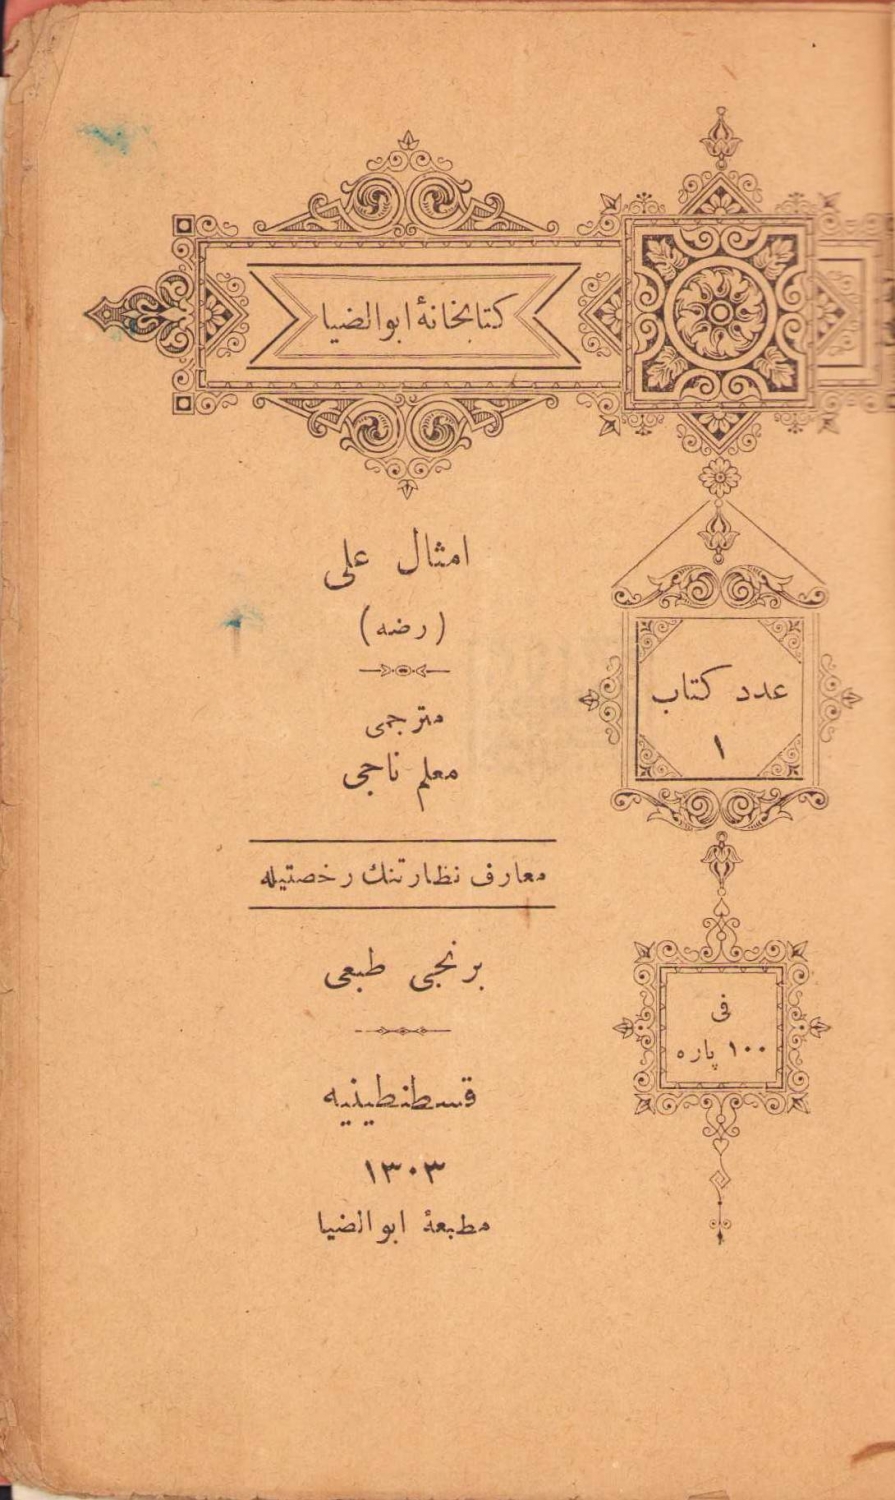 كتابخانهٔ ابوالضيا
امثال على
(رضه)
مترجمى
معلم ناجى
معارف نظارتنك رخصتيله
برنجى طبعى
قسطنطينيه
١٣٠٣
مطبعهٔ ابوالضيا
عدد كتاب
١
فى
١٠٠ پاره